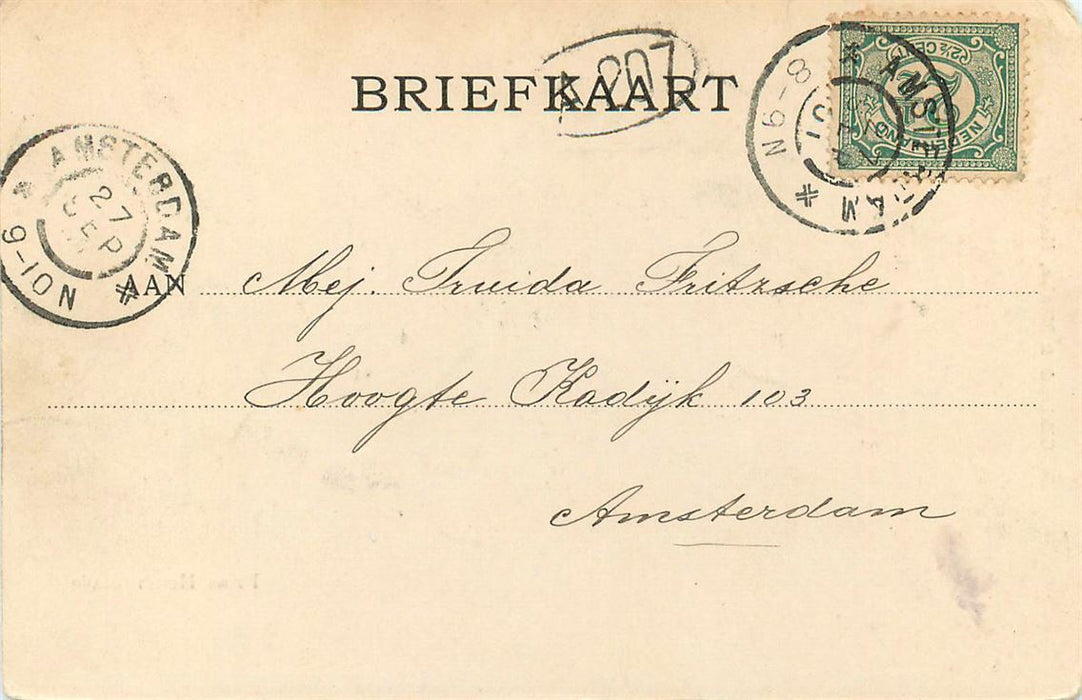 BRIEFKAART
A 207
AMSTERDAM
27
SEP
9-10N
AMSTERDAM
8-9N
NEDERLAND
2½
AAN Mej. Truida Fritzsche
Hoogte Kadijk 103
Amsterdam